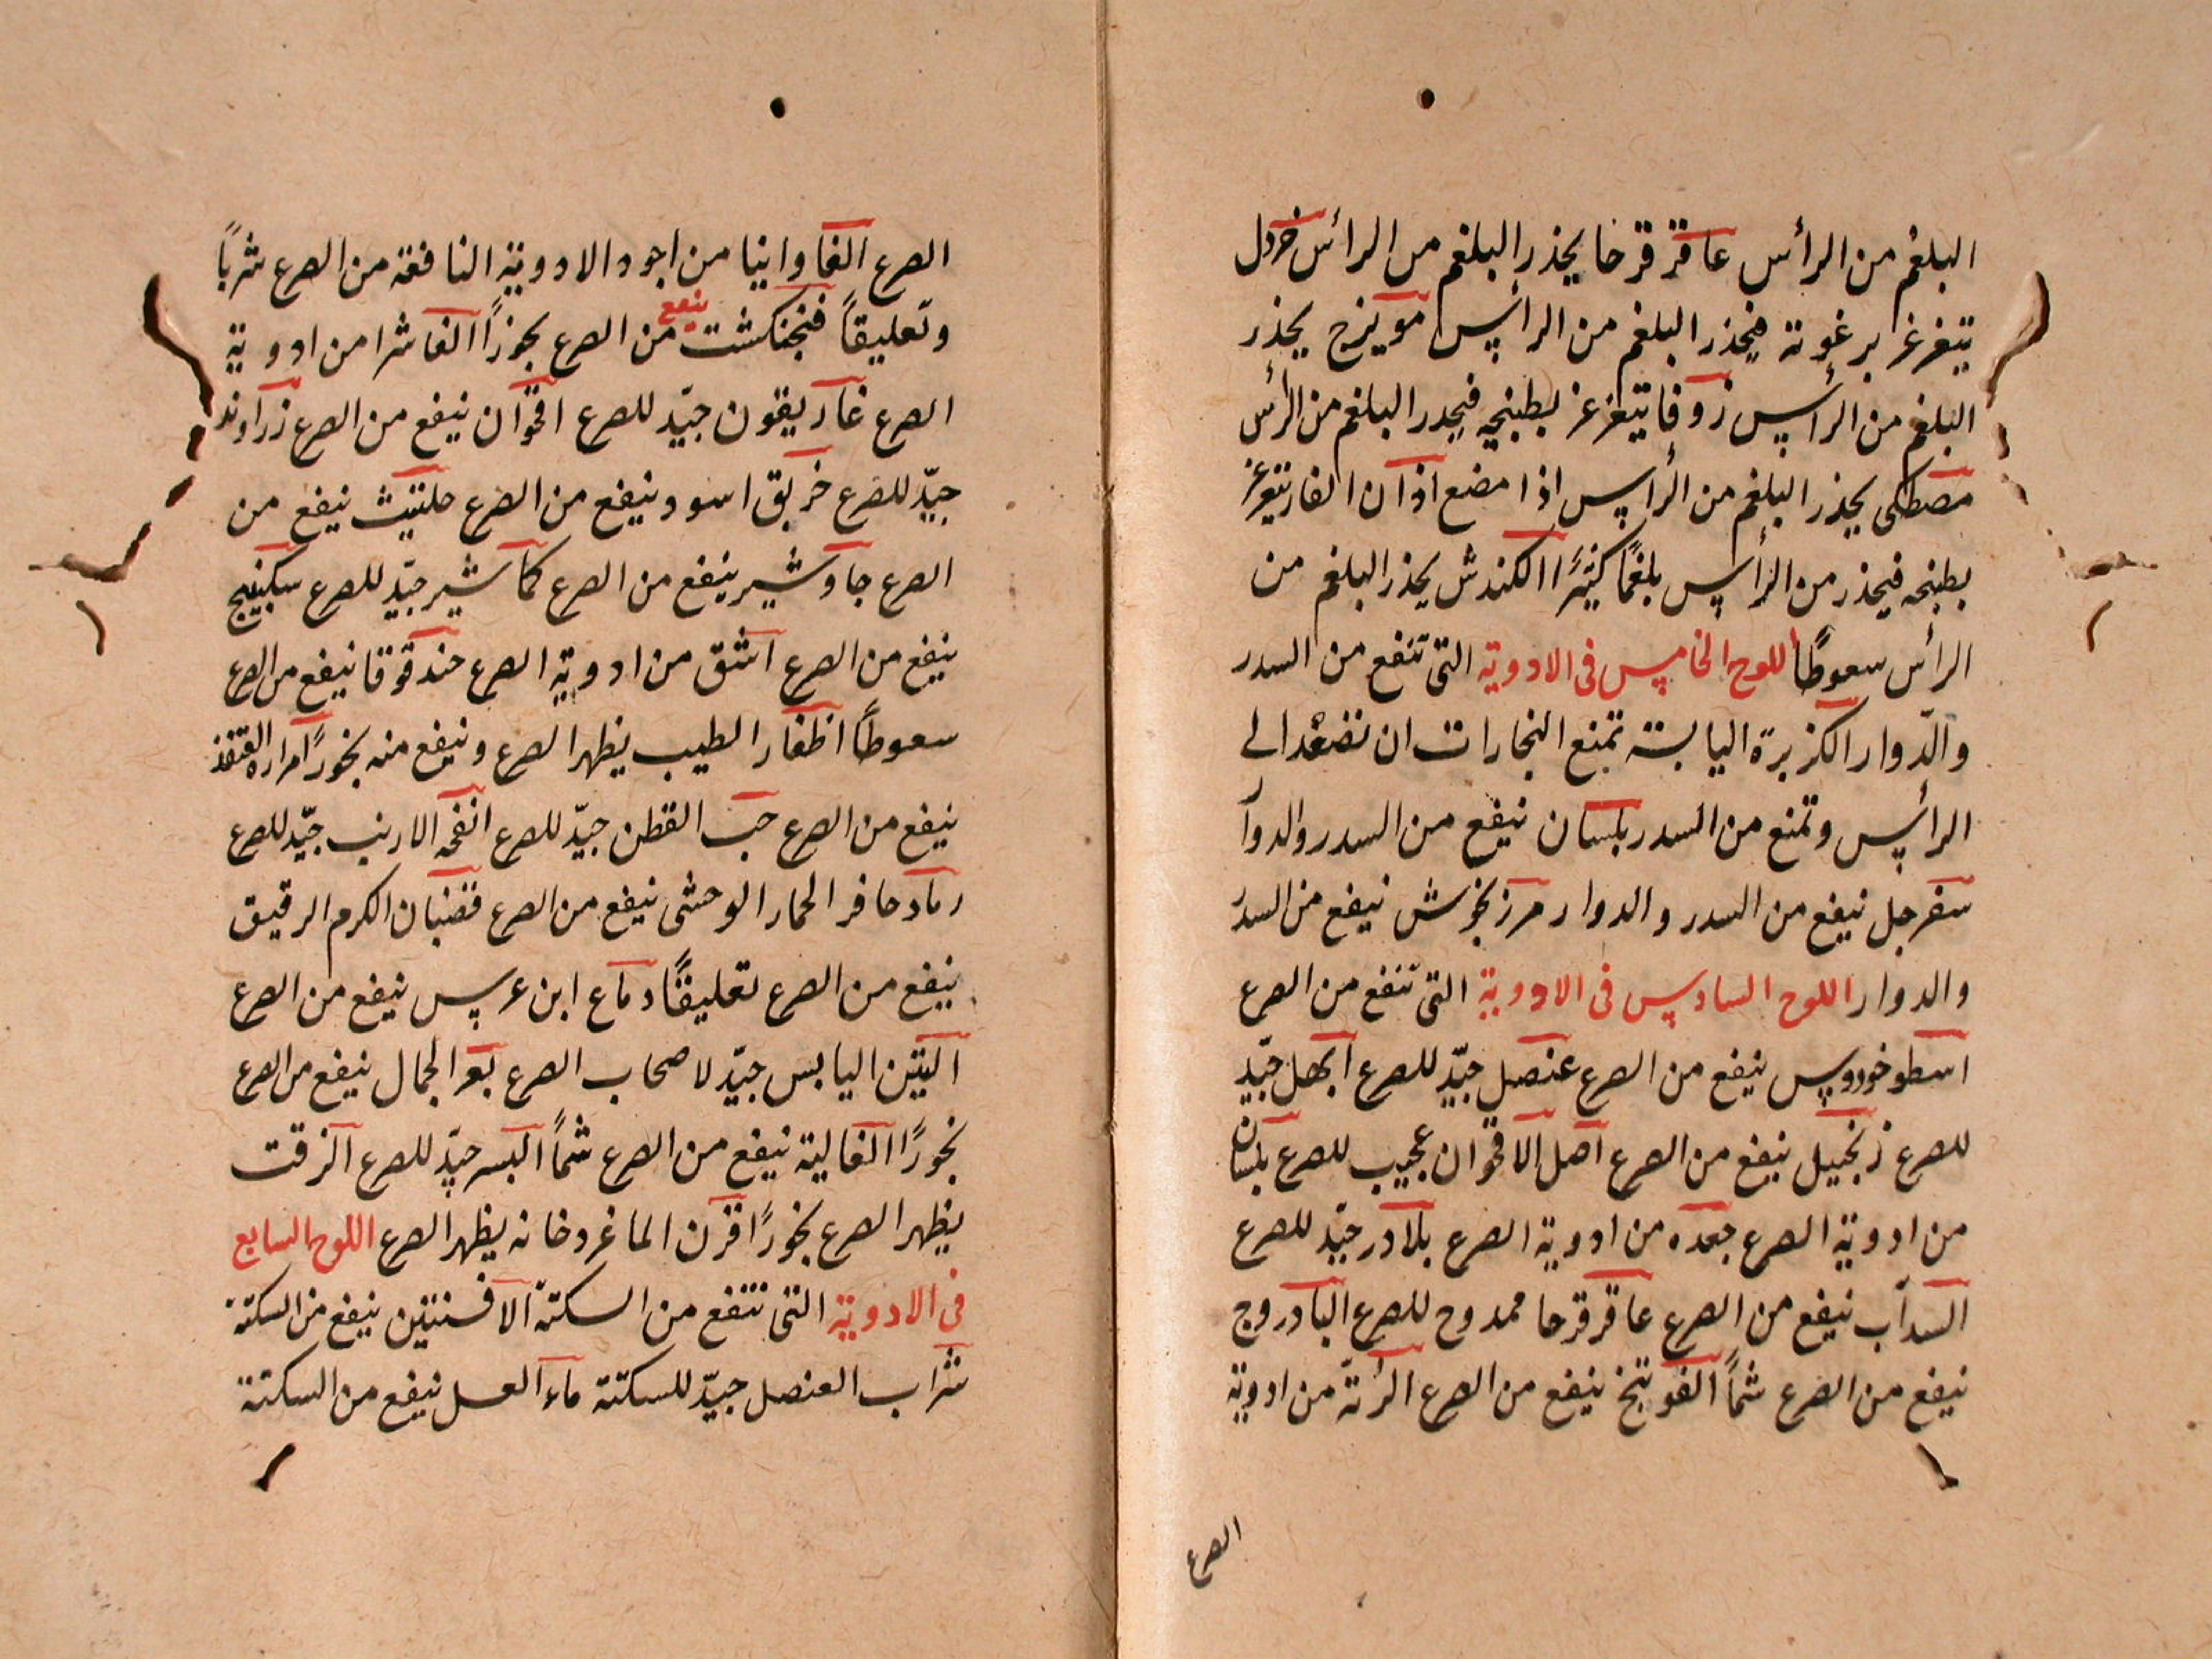 البلغم من الرأس عاقر قرحا يحذر البلغم من الرأس خردل
يتغرغر برغوته فيحذر البلغم من الرأس مويزج يحذر
البلغم من الرأس زوفا يتغرغر بطبيخه فيحدر البلغم من الرأس
مصطكى يحذر البلغم من الرأس اذا مضغ اذان الفار يتغرغر
بطبخه فيحذر من الرأس بلغمًا كثيرًا الكندش يحذر البلغم من
الرأس سعوطًا اللوح الخامس فى الادوية التى تنفع من السدر
والدّوار الكزبرة اليابسة تمنع البخارات ان تصعد الى
الرأس وتمنع من السدر بلسان ينفع من السدر والدوار
سفرجل ينفع من السدر والدوار مرزنجوش ينفع من السدر
والدوار اللوح السادس فى الادوية التى تنفع من الصرع
اسطوخودوس ينفع من الصرع عنصل جيّد للصرع ابهل جيّد
للصرع زنجبيل ينفع من الصرع اصل الاقحوان عجيب للصرع بلسان
من ادوية الصرع جعده من ادوية الصرع بلادر جيّد للصرع
السداب ينفع من الصرع عاقر قرحا ممدوح للصرع البادروج
ينفع من الصرع شمًا الفوتنج ينفع من الصرع الرئة من ادوية
الصرع
الصرع الفاوانيا من اجود الادوية النافعة من الصرع شربًا
وتعليقاً فنجنكشت ينفع من الصرع بخورًا الفاشرا من ادوية
الصرع غاريقون جيّد للصرع اقحوان ينفع من الصرع زراوند
جيّد للصرع خربق اسود ينفع من الصرع حلتيت ينفع من
الصرع جاوشير ينفع من الصرع كماشير جيّد للصرع سكبينج
ينفع من الصرع اشق من ادوية الصرع حندقوقا ينفع من الصرع
سعوطاً اظفار الطيب يظهر الصرع وينفع منه بخورًا مراره القنفذ
ينفع من الصرع حب القطن جيّد للصرع انفحه الارنب جيّد للصرع
رماد حافر الحمار الوحشى ينفع من الصرع قضبان الكرم الرقيق
ينفع من الصرع تعليقًا دماغ ابن عرس ينفع من الصرع
التين اليابس جيّد لاصحاب الصرع بعر الجمال ينفع من الصرع
بخورًا الغالية ينفع من الصرع شماً البسر جيّد للصرع الزفت
يظهر الصرع بخورًا قرن الماعز دخانه يظهر الصرع اللوح السابع
فى الادوية التى تنفع من السكتة الافسنتين ينفع من السكتة
شراب العنصل جيّد للسكتة ماء العسل ينفع من السكتة